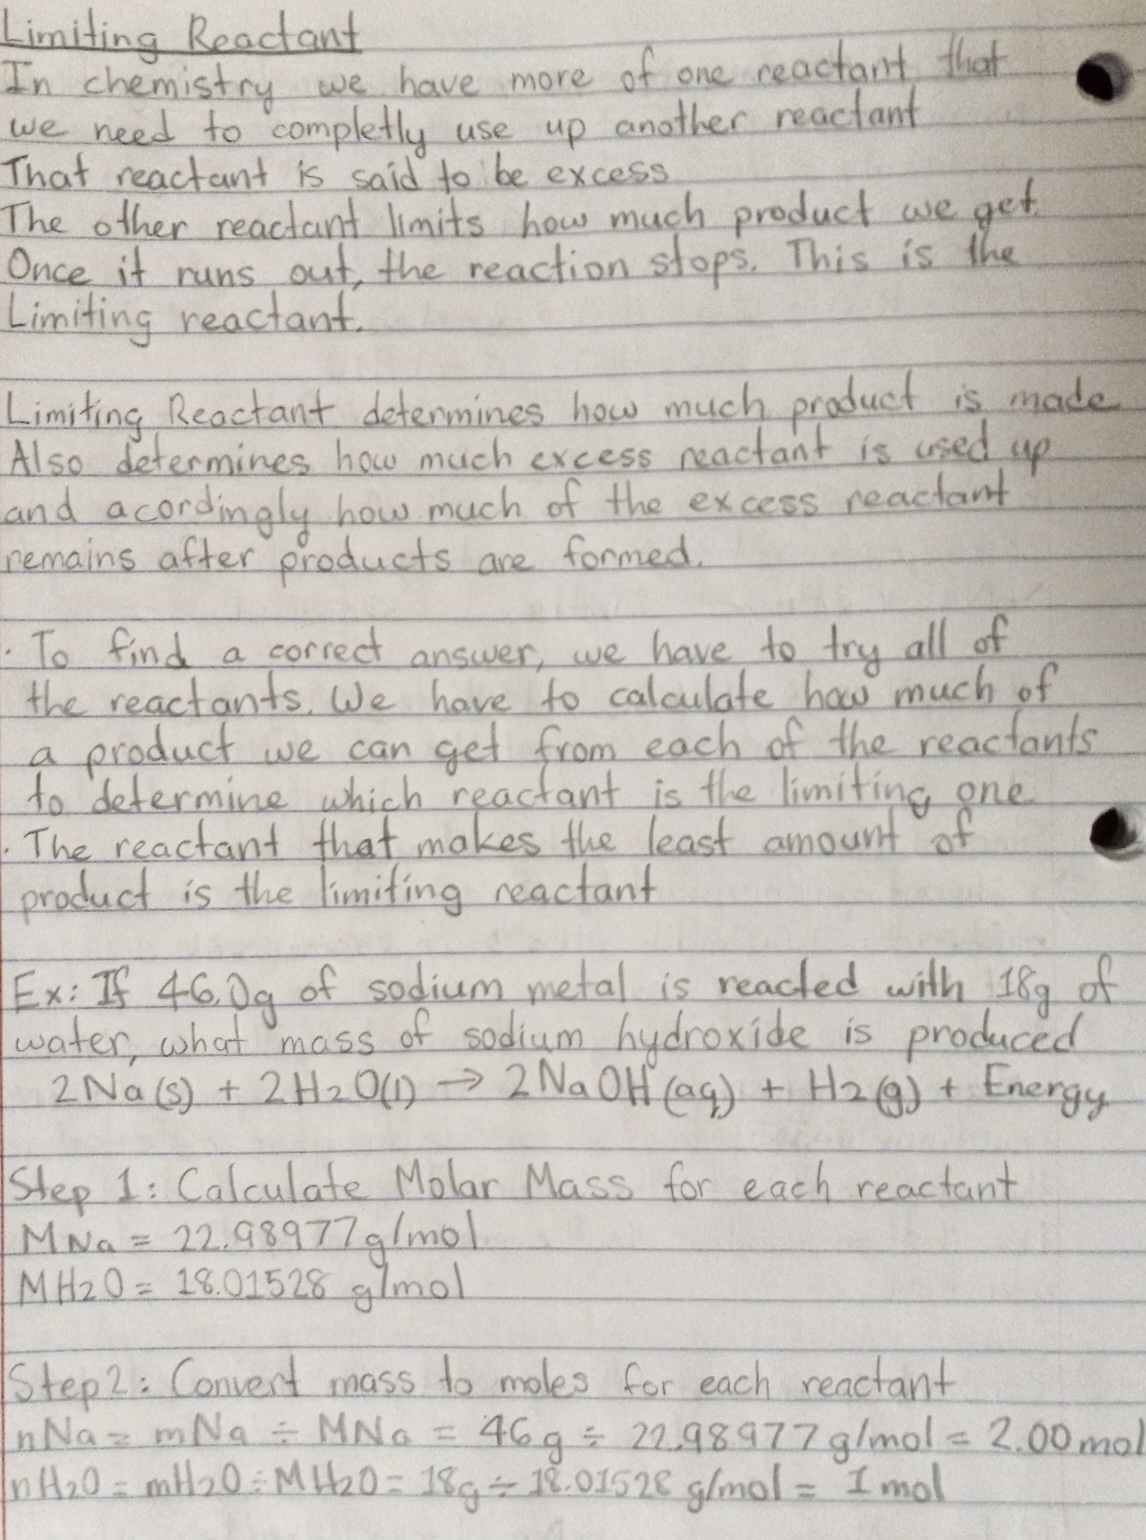 Limiting Reactant
In chemistry we have more of one reactant that
we need to completly use up another reactant
That reactant is said to be excess
The other reactant limits how much product we get.
Once it runs out, the reaction stops. This is the
Limiting reactant.
Limiting Reactant determines how much product is made
Also determines how much excess reactant is used up
and acordingly how much of the excess reactant
remains after products are formed.
· To find a correct answer, we have to try all of
the reactants. We have to calculate how much of
a product we can get from each of the reactants
to determine which reactant is the limiting one.
· The reactant that makes the least amount of
product is the limiting reactant
Ex: If 46.0g of sodium metal is reacted with 18g of
water, what mass of sodium hydroxide is produced
2Na(s) + 2H2O(l) → 2NaOH(aq) + H2(g) + Energy
Step 1: Calculate Molar Mass for each reactant
MNa = 22.98977g/mol
MH2O = 18.01528 g/mol
Step 2: Convert mass to moles for each reactant
nNa = mNa ÷ MNa = 46g ÷ 22.98977g/mol = 2.00mol
nH2O = mH2O ÷ MH2O = 18g ÷ 18.01528 g/mol = 1 mol